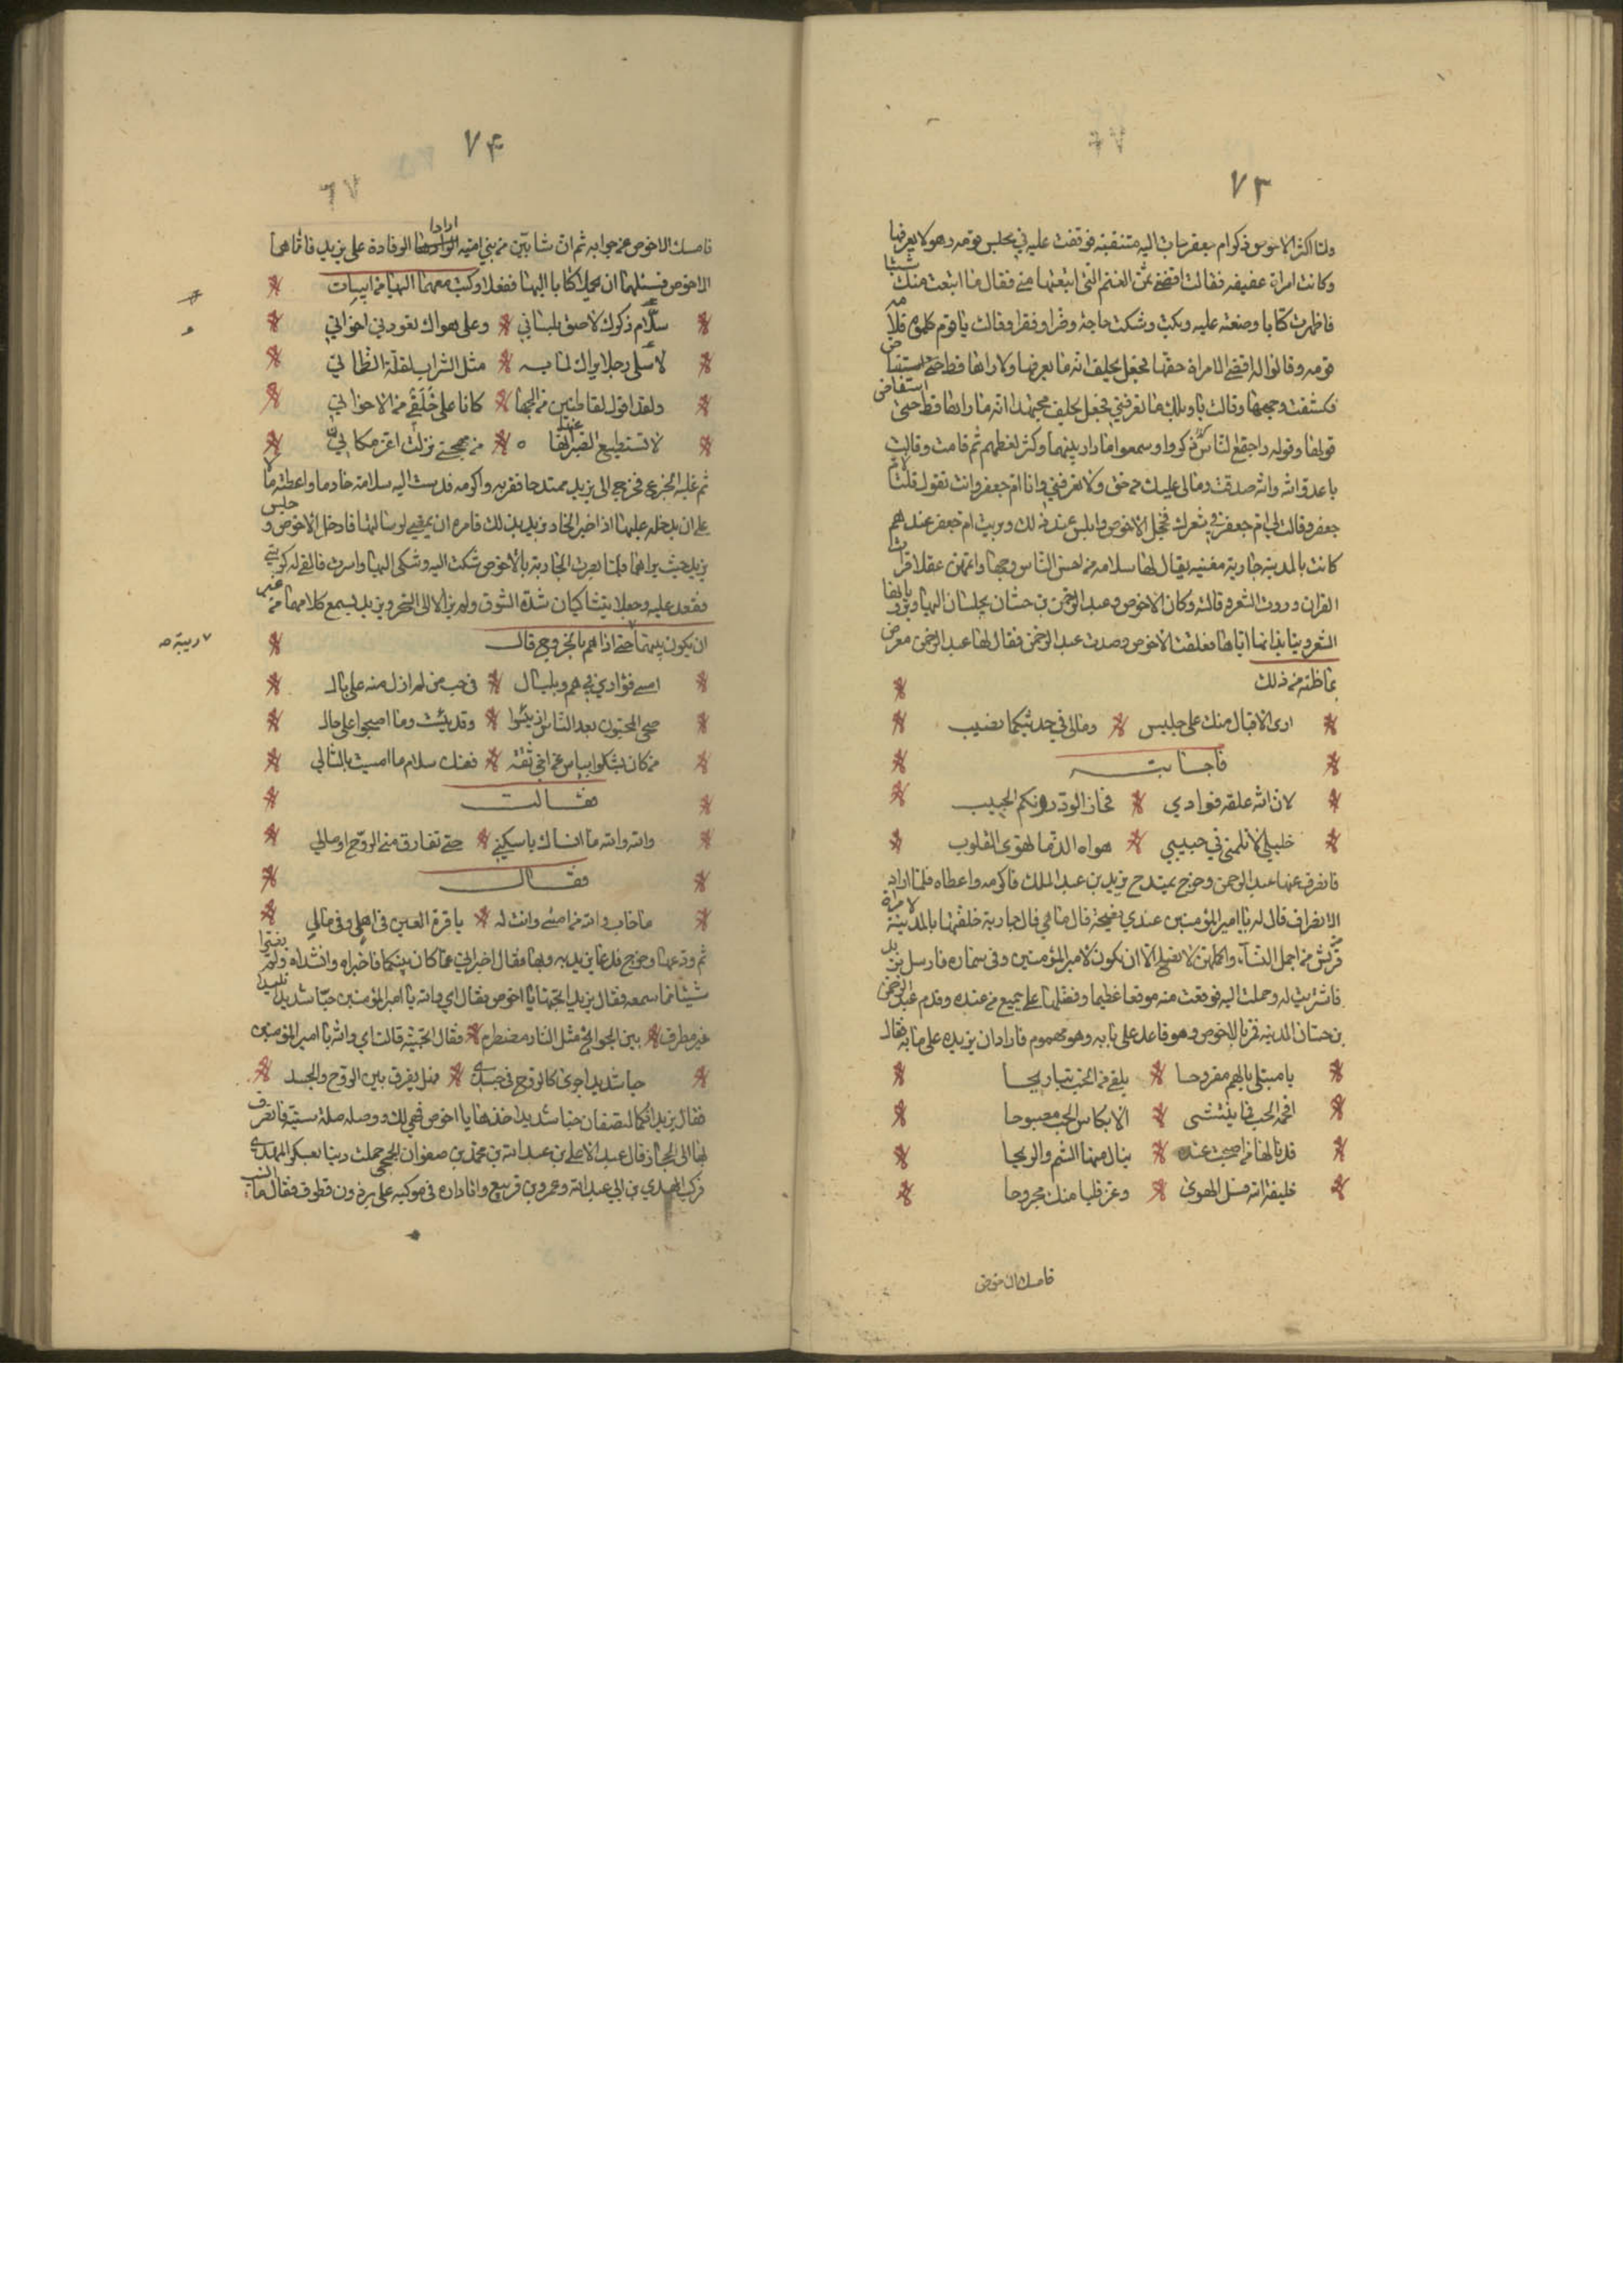 ٧٣
ولما اكثر الاحوص ذكر ام جعفر جاءت اليه متنقبة فوقفت عليه في مجلس قومه وهو لا يعرفها
وكانت امراة عفيفة فقالت اقضني ثمن الغنم التي ابتعتها مني فقال ما ابتعت منك شيئا
فاظهرت كتابا وضعته عليه وبكت وشكت حاجة وضرا وفقرا وقالت يا قوم كلموه فلامه
قومه وقالوا له اقض الامراة حقها فجعل يحلف انه ما يعرفها ولا راها قط حتى استفاض
فكشفت وجهها وقالت يا ويلك ما تعرفني فجعل يحلف مجتهدا انه ما راها قط حتى استفاض
قولها وقوله واجتمع الناس وكثروا وسمعوا ما دار بينهما وكثر لغطهم ثم قامت وقالت
يا عدو الله والله صدقت ومالي عليك من حق ولا تعرفني وانا ام جعفر وانت تقول قلت لام
جعفر وقالت لي ام جعفر في شعرك فخجل الاخوص وابلس عند ذلك وبريت ام جعفر عندهم
كانت بالمدينة جارية مغنية يقال لها سلامه من احسن الناس وجها واتمهن عقلا قرات
القران وروت الشعر وقالته وكان الاخوص وعبد الرحمن بن حسان يجلسان اليها ويرويانها
الشعر ويناشدانها اياها فعلقت الاخوص وصدت عبد الرحمن فقال لها عبد الرحمن معرض
بما ظنه من ذلك
ارى الاقبال منك على جليسي ومالي في حديثكما نصيب
فاجابته
لان الله علقه فوادي فحاز الود دونكم الحبيب
خليلي لا تلمني في حبيبي هواه الذ ما تهوى القلوب
فانصرف عنها عبد الرحمن وخرج يمتدح يزيد بن عبد الملك فاكرمه واعطاه فلما اراد
الانصراف قال له يا امير المؤمنين عندي نصيحة قال ما هي قال جارية خلفتها بالمدينة لامراة
قريش من اجمل النساء واكملهن لا تصلح الا ان يكون لامير المؤمنين وفي سماره فارسل يزيد
فاشتريت له وحملت اليه فوقعت منه موقعا عظيما وفضلها على جميع من عنده وقدم عبد الرحمن
بن حسان المدينه فمر بالاخوص وهو قاعد على بابه وهو مهموم فاراد ان يزيده على ما به فقال
يا مبتلى بالهم مفروحا يلقى من الحب تباريحا
افحمه الحب فما ينثنى الا بكاس الحب مصبوحا
قد نالها من اصبحت عنده ينال منها الشم والريحا
خليفة الله فسل الهوى وعز قلبا منك مجروحا
فامسك الاخوص
٧۴
٦٧
فامسك الاخوص عن جوابه ثم ان شابين من بني اميه ارادا الوفادة على يزيد فاتاهما
الاخوص فسئلهما ان يحملا كتابا اليها ففعلا وكتب معهما اليها من ابيات
سلام ذكرك لاصق بلساني وعلى هواك تعودني احزاني
لا تسلى رجلا يراك لما به مثل الشراب لغلة الظمآن
ولقد اقول لقاطنين من اهلها كانا على خلقي من الاخوان
لا تستطيع الصبر عنها انها من مهجتي نزلت اعز مكان
ثم غلبه الجزع فخرج الى يزيد ممتدحا فقربه واكرمه فدست اليه سلامه خادما واعطته مالا
على ان يدخله عليها اذ اخبر الخادم يزيد بذلك فامره ان يمضي لرسالتها فادخل الاخوص وجلس
يزيد حيث يراهما ولما بصرت الجارية بالاخوص شكت اليه وشكى اليها وامرت فالقي له كرسي
فقعد عليه وجعلا يتشاكيان شدة الشوق ولم يزالا الى السحر ويزيد يسمع كلامهما من غير
ان يكون بينهما ريبة حتى اذا هم بالخروج قال
امسى فؤادي في هم وبلبال في حب من لم ازل منه على بال
صحى المحبون بعد الناس اذ يئسوا وقد يئست وما اصبحوا على حال
من كان يشكوا بياس من اخي ثقة فعنك سلام ما امسيت بالسالي
فقالت
والله والله ما انساك يا سكني حتى تفارق مني الروح اوصالي
فقال
ما خاب والله من امسى وانت له يا قرة العين في اهلي وفي مالي
ثم ودعها وخرج فدعا يزيد به وبها فقال اخبراني عما كان بينكما فاخبراه وانشداه ولم يغيرا
شيئا مما سمعه فقال يزيد اتحبها يا اخوص فقال اي والله يا امير المؤمنين حبا شديدا تليدا
غير مطرف بين الجوانح مثل النار مضطرم فقال اتحبينه قالت اي والله يا امير المؤمنين
حبا شديدا جرى كالروح في جسدي فهل يفرق بين الروح والجسد
فقال يزيد انكما لتصفان حبا شديدا خذها يا اخوص فهي لك ووصله صلة سنية فانصرف
بها الى الحجاز قال عبد الاعلى بن عبد الله بن محمد بن صفوان الجمحي حملت دينا بعسكر المهدي
فركب المهدي بن ابي عبد الله وعمرو بن قريع وانا داره في موكبه على برذون قطوف فقال ما انسب